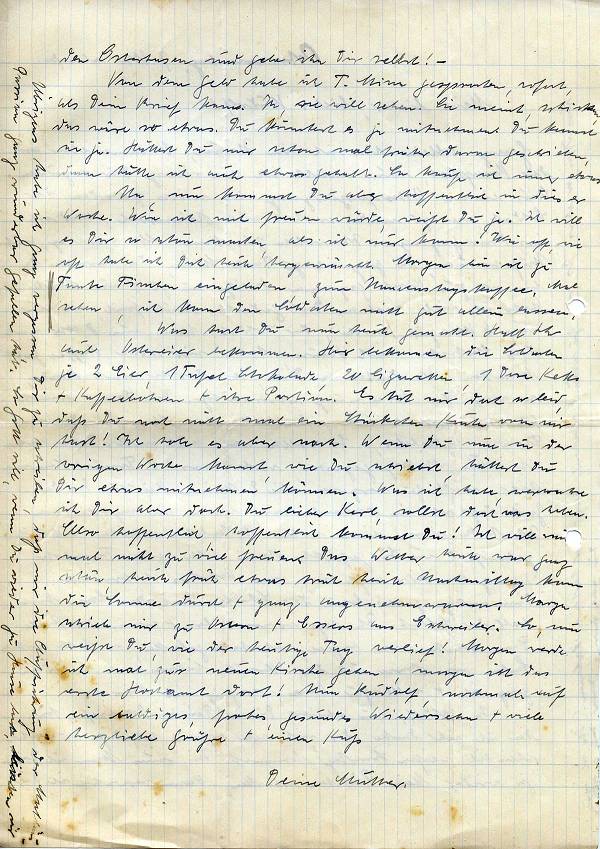 den Osterhasen und gebe ihn Dir selbst! –
Von dem Geld habe ich T. Mina gesprochen, sofort,
als Dein Brief kam. Ja sie will sehen. Sie meint, schicken,
das wäre so etwas. Du könntest es ja mitnehmen! Du kommst
ja. Hättest Du mir schon mal früher davon geschrieben,
dann hätte ich auch etwas gehabt. So kaufe ich immer etwas
Na, nun kommst Du aber hoffentlich in dieser
Woche. Wie ich mich freuen würde, weißt Du ja. Ich will
es Dir so schön machen als ich nur kann! Wie oft, wie
oft habe ich Dich heute hergewünscht. Morgen bin ich ja
Tante eingeladen zum Namenstagskaffee. Mal
sehen, ich kann den Soldaten nicht gut allein lassen,
Was hast Du nun heute gemacht. Habt Ihr
auch Ostereier bekommen. Hier bekommen die Soldaten
je 2 Eier, 1 Tafel Schokolade, 20 Cigaretten, 1 Dose Keks
+ Kaffeebohnen + ihre Portion. Es tut mir doch so leid,
daß Du noch nicht mal ein Stückchen Kuchen von mir
hast! Ich hole es aber nach. Wenn Du nun in der
vorigen Woche kamst, wie Du schriebst, hättest Du
Dir etwas mitnehmen können. Was ich habe, verwahre
ich Dir aber doch. Du lieber Kerl, sollst doch was haben.
Also hoffentlich hoffentlich kommst Du! Ich will mich
mal nicht zu viel freuen. Das Wetter heute war ganz
schön, heute früh etwas trüb heute Nachmittag kam
die Sonne durch + ganz angenehm warm.
schrieb mir zu Ostern + Essers aus Eschweiler. So, nun
weißt Du, wie der heutige Tag verlief! Morgen werde
ich mal zur neuen Kirche gehen, morgen ist das
erste Hochamt dort! Nun Rudolf, nochmals auf
ein baldiges, frohes, gesundes Wiedersehn + viele
herzliche Grüße + einen Kuß
Deine Mutter.
Übrigens habe ich ganz vergessen Dir zu schreiben, daß mir die Aufführung der
ganz wunderbar gefallen hat. So Gott will, wenn Du wieder zu Hause bist,